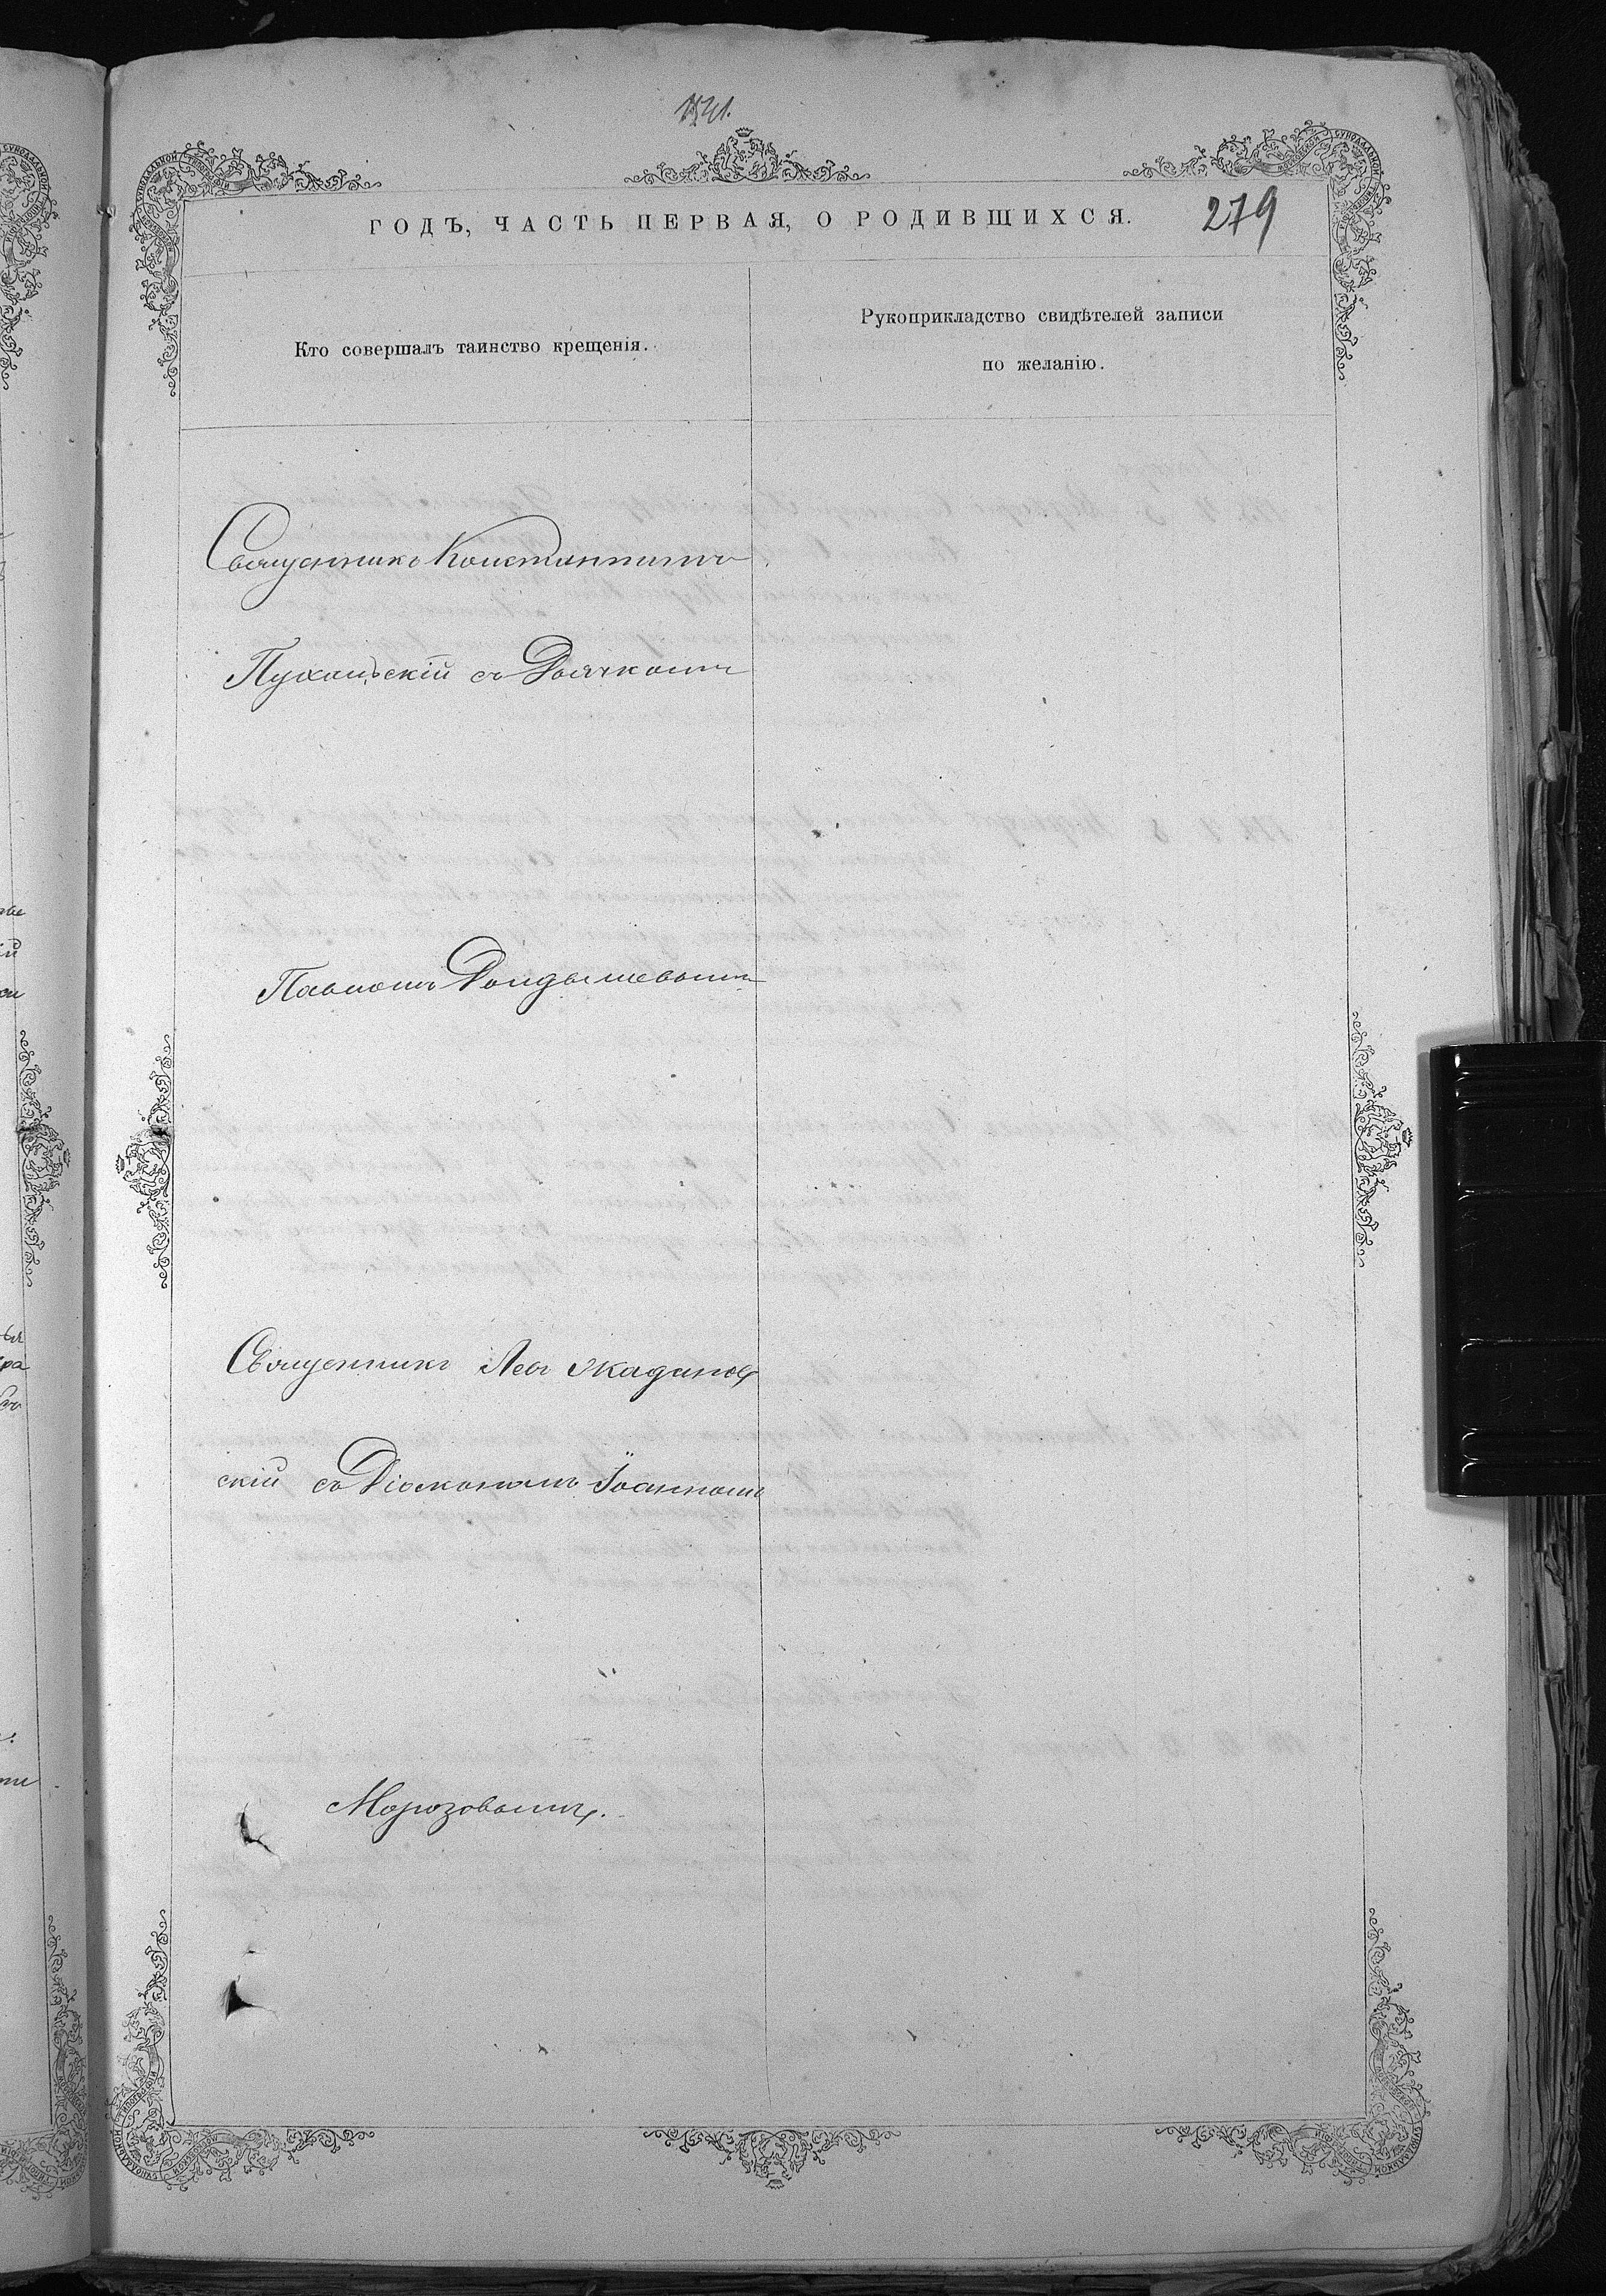 279
ГОДЪ, ЧАСТЬ ПЕРВАЯ, О РОДИВШИХСЯ.
Кто совершалъ таинство крещенія.
Рукоприкладство свидѣтелей записи
по желанію.
Священникъ Константинъ
Пухальскій съ Дьячкомъ
Павломъ Дондышевымъ
Священникъ Левъ Жадинов
скій съ Діакономъ Іоанномъ
Морозовымъ.